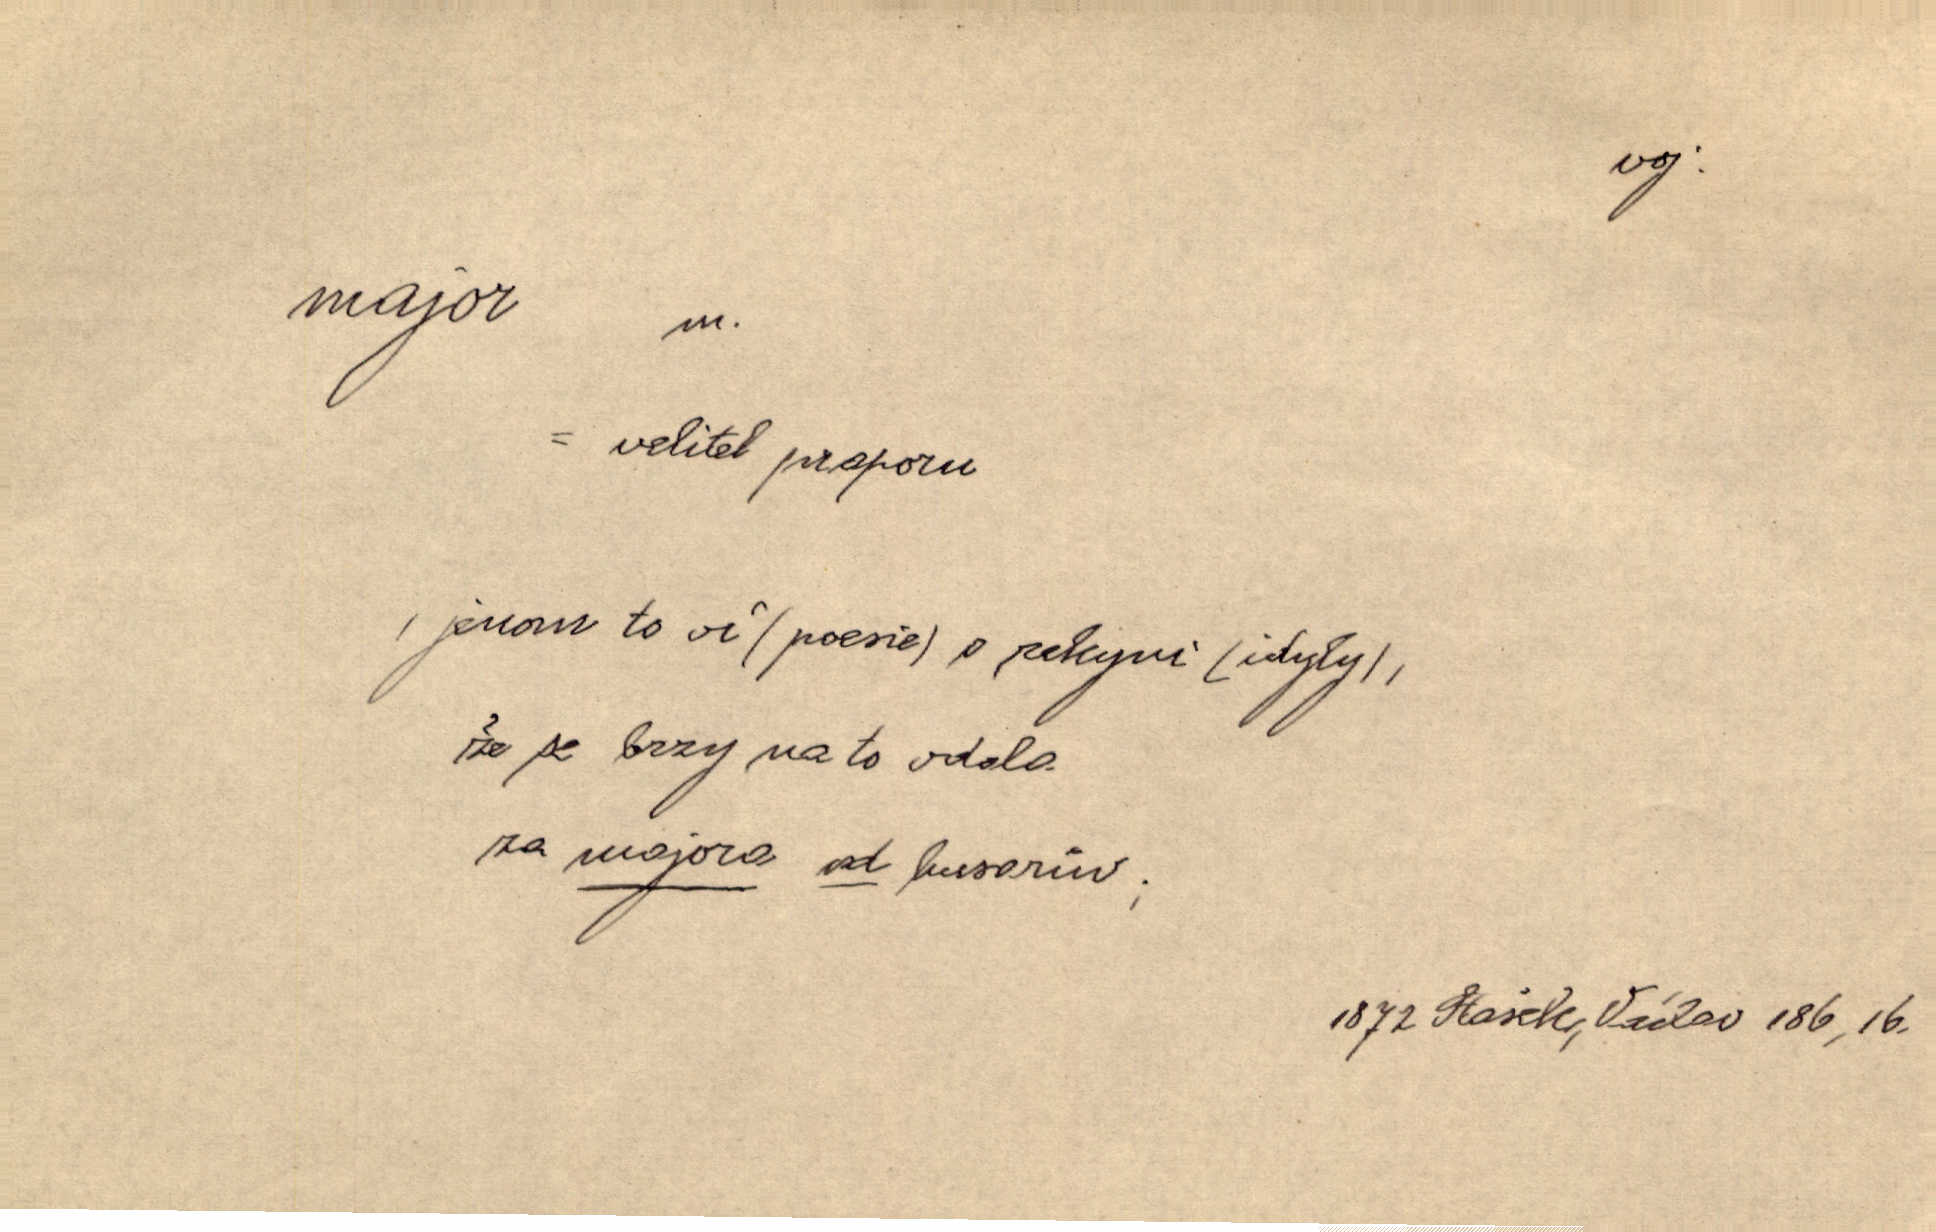 voj.
major m.
= velitel praporu
, jenom to ví (poesie) o rekyni (idyly),
že se brzy na to vdala
za majora od husarův;
1872 Stašek, Václav 186, 16.